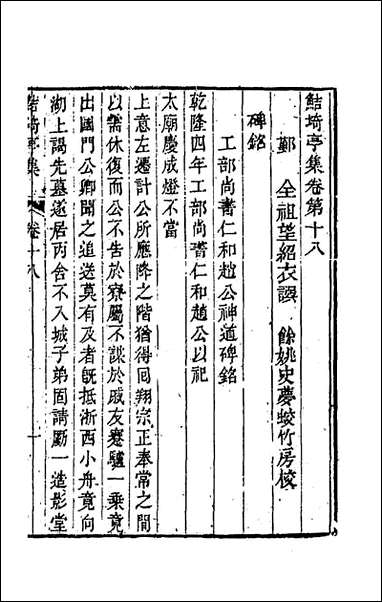 鮚埼亭集卷第十八
鄞 全祖望紹衣譔 餘姚史夢蛟竹房校
碑銘
工部尚書仁和趙公神道碑銘
乾隆四年工部尚書仁和趙公以祀
太廟慶成燈不當
上意左遷計公所應降之階猶得回翔宗正奉常之間
以需休復而公不告於寮屬不謀於戚友蹇驢一乗竟
出國門公卿聞之追送莫有及者旣抵浙西小舟竟向
湖上謁先墓遂居丙舍不入城子弟固請勵一造影堂
鮚埼亭集 卷十八 一